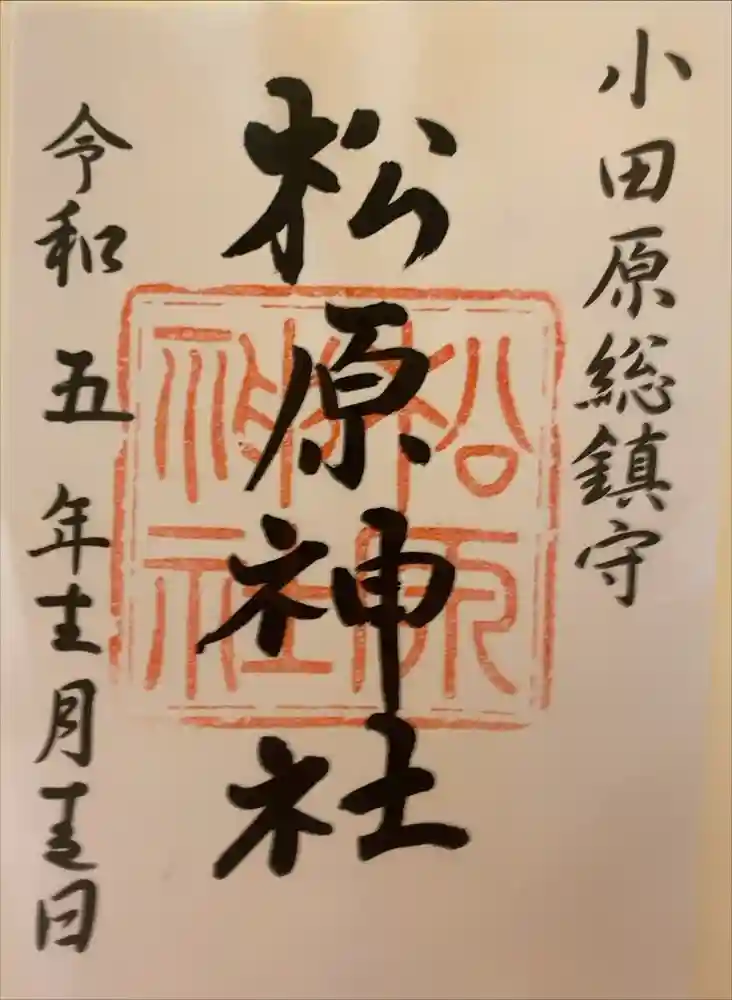 小田原総鎮守
松原神社
令和五年十二月十三日
松原
神社